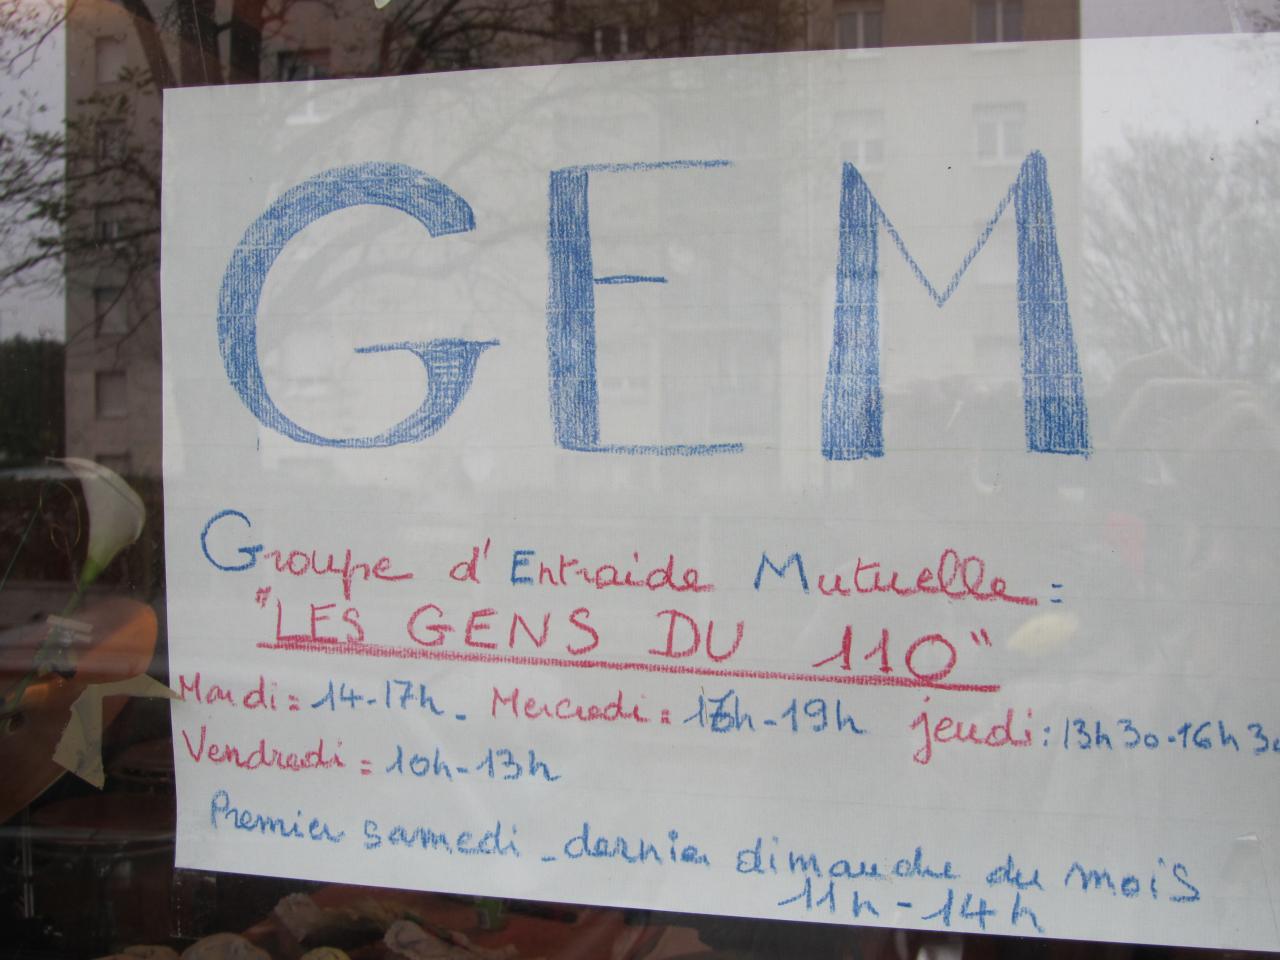 GEM
Groupe d'Entraide Mutuelle:
"LES GENS DU 110"
Mardi: 14-17h. Mercredi: 16h-19h jeudi: 13h30-16h30
Vendredi: 10h-13h
Premier samedi - dernier dimanche du mois
11h-14h